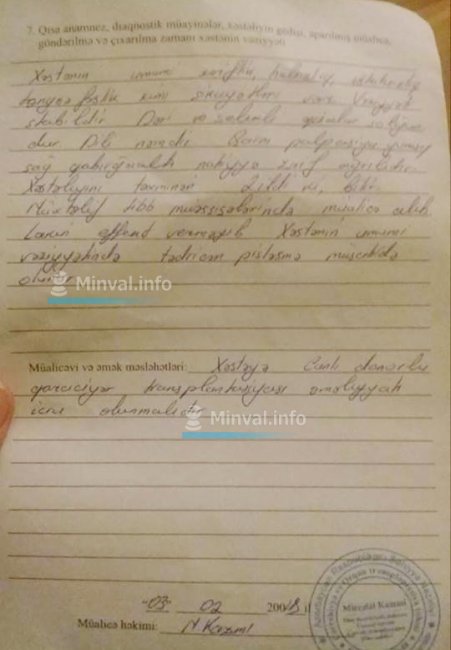 7. Qısa anamnez, diaqnostik müayinələr, xəstəliyin gedişi, aparılmış müalicə,
göndərilmə və çıxarılma zamanı xəstənin vəziyyəti
Xəstənin ümumi zəiflik, halsızlıq, iştahsızlıq
təngnəfəslik kimi şikayətləri var. Vəziyyəti
stabildir Dəri və selikli qişalar solğun
dur. Dili nəmdir. Qarın palpasiyada yumşaq
sağ qabırğaaltı nahiyyə zəif ağrılıdır.
Xəstəliyini təxminən 2 ildi ki, bilir.
Müxtəlif müəssisələrində müalicə alıb
Lakin effekt verməyib Xəstənin ümumi
vəziyyətində tədricən pisləşmə müşahidə
olunur.
Minval.info
Müalicəvi və əmək məsləhətləri: Xəstəyə Canlı donorlu
qaraciyər transplantasiyası əməliyyatı
icra olunmalıdır
Minval.info
"03" 02 2008 il
Müalicə həkimi: M. Kazımi
Mircəlal Kazımi